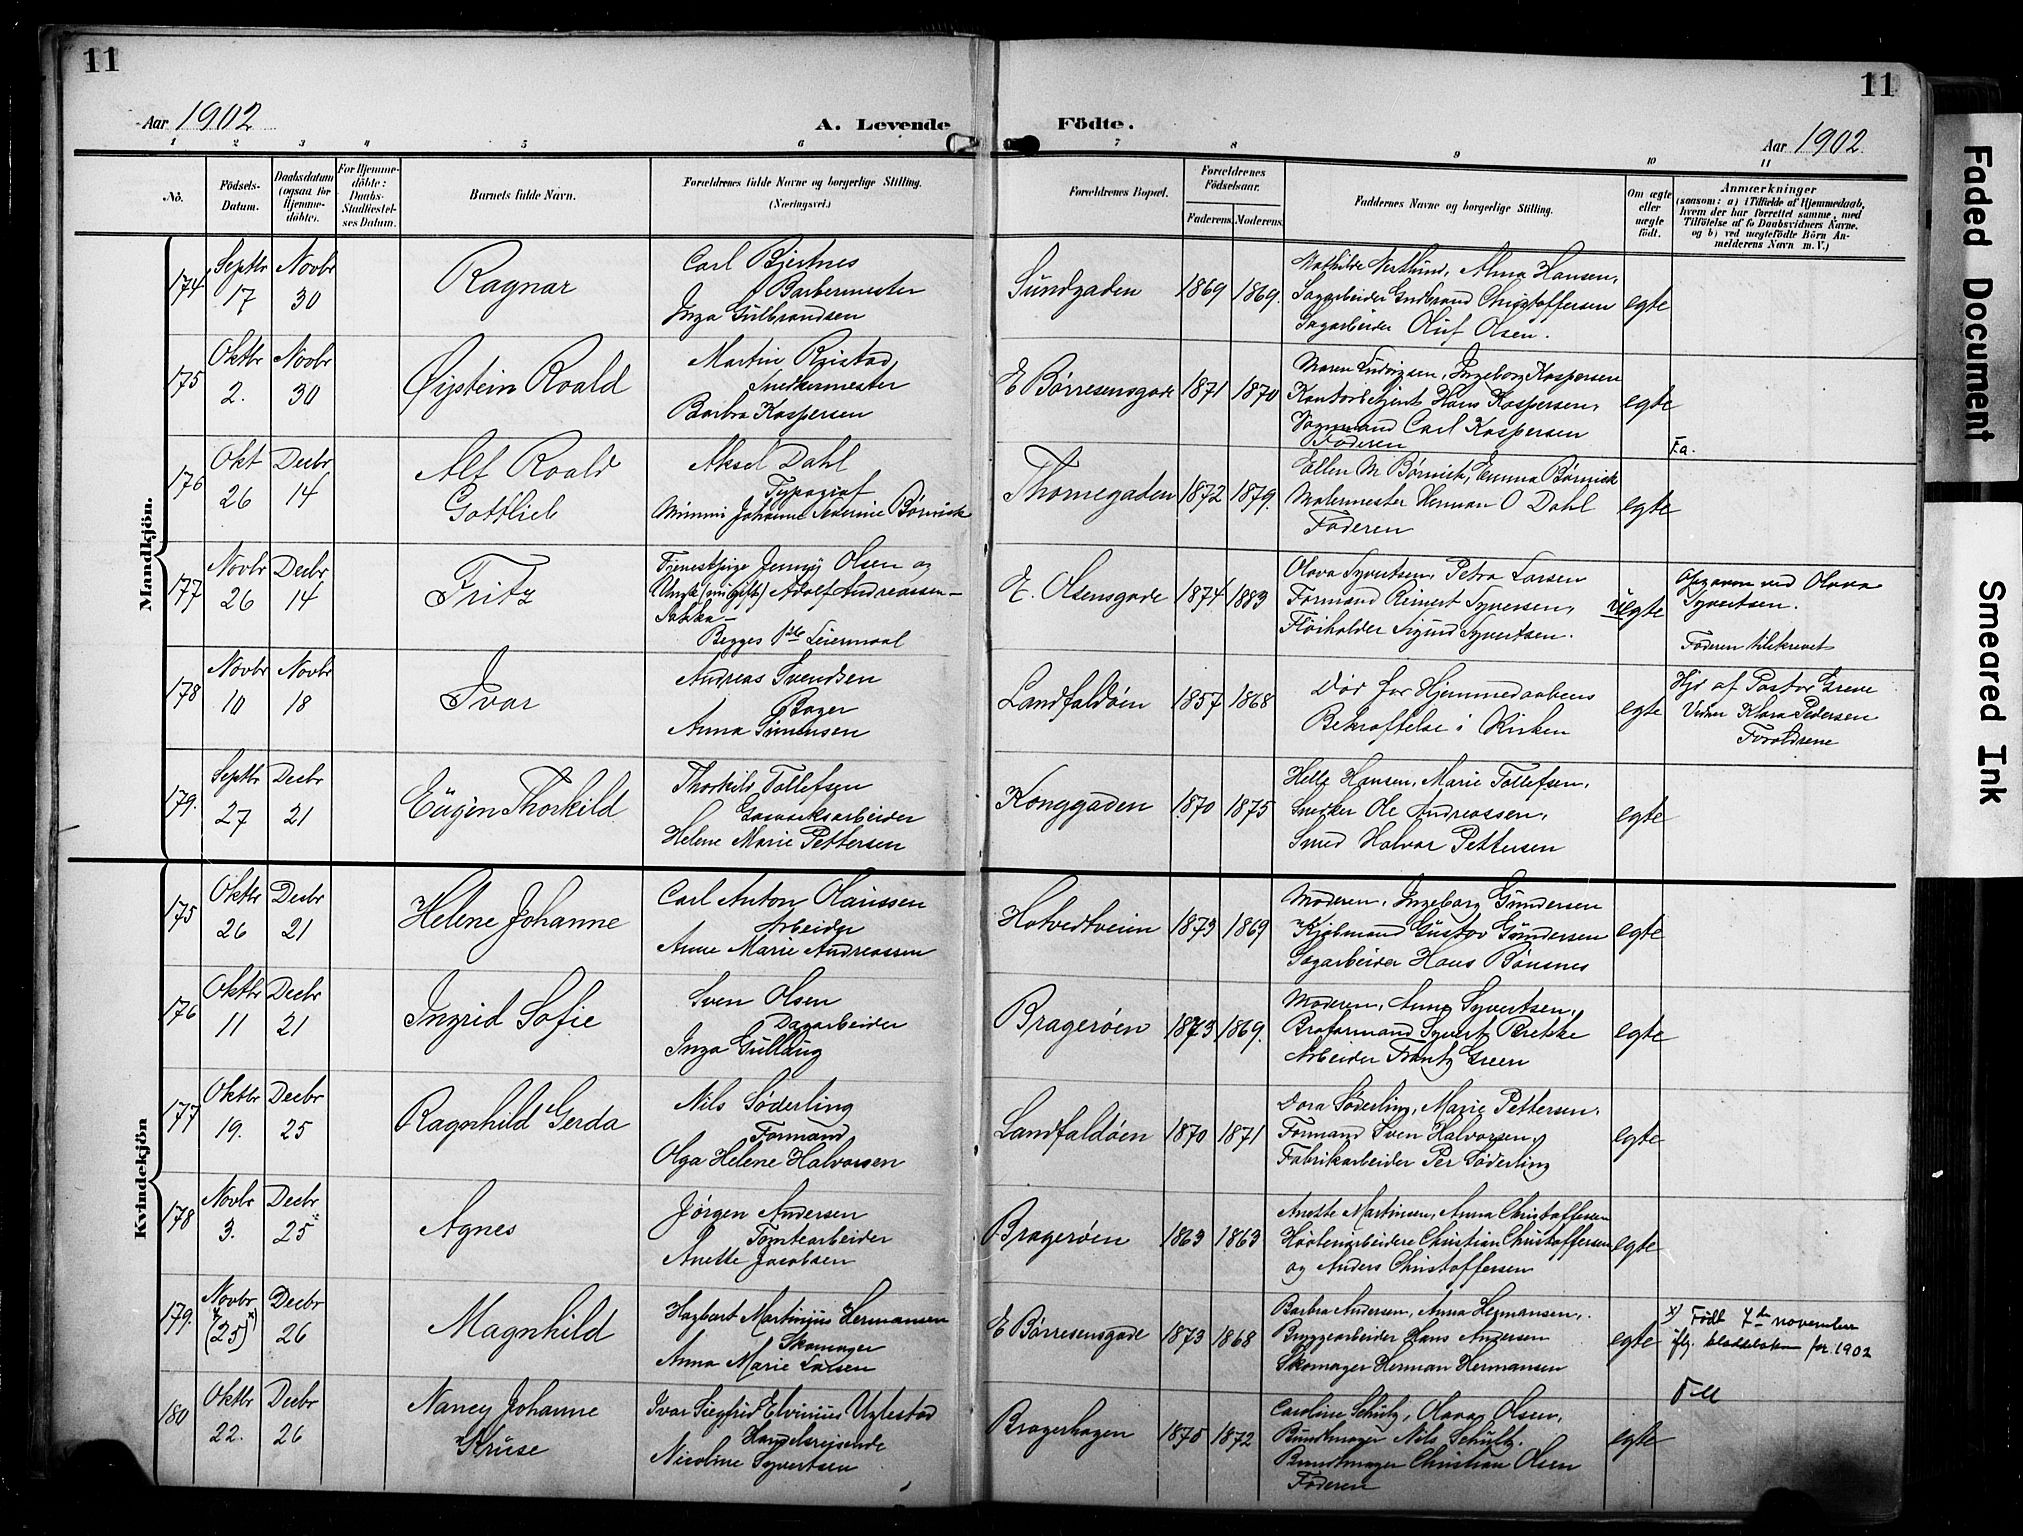 11
11
Aar 1902
A. Levende Födte.
Aar 1902.
1 2 3 4 5 6 7 8 9 10 11
No.
Födsels-Datum.
Daabsdatum (ogsaa for Hjemme-döbte).
For Hjemme-döbte: Daabs-Stadfæstel-ses Datum.
Barnets fulde Navn.
Forældrenes fulde Navne og borgerlige Stilling.
(Næringsvei.)
Forældrenes Bopæl.
Forældrenes Födselsaar.
Faderens. Moderens.
Faddernes Navne og borgerlige Stilling.
Om ægte eller uægte født.
Anmærkninger
(saasom: a) i Tilfælde af Hjemmedaab,
hvem der har forrettet samme, med
Tilföielse af to Daabsvidners Navne.
og b) ved uægtefödte Börn An-
melderens Navn m. V.)
Mandkjön.
174 Septbr 17 Novbr 30
Ragnar
Carl Bjertnes
Barbermester
Inga Gulbrandsen
Sundgaden 1869 1869.
Mathilde Vestlund, Alma Hansen,
Sagarbeider Gudbrand Christoffersen
Sagarbeider Oluf Olsen.
egte
175 Oktbr 2. Novbr 30
Øistein Roald
Martin Reistad,
Snedkermester
Barbra Kaspersen
E Børresensgade 1871 1870
Maren Ludvigsen, Ingeborg Kaspersen
Kontorbetjent Hans Kaspersen,
Vognmand Carl Kaspersen
Faderen
egte
176 Okt 26 Decbr 14
Alf Roald
Gottlieb
Aksel Dahl
Typograf
Mimmi Johanne Severine Børnick
Thornegaden 1872 1879.
Ellen M Børnick, Emma Børnick
Malermester Herman O Dahl
Faderen
egte
F.a.
177 Novbr 26 Decbr 14
Fritz
Tjenestpige Jenny Olsen og
Adolf Andreassen –
Begges 1ste Leiermaal
E. Olsensgade 1874 1883
Olava Syvertsen, Petra Larsen
Formand Reinert Syversen,
Sigurd Syvertsen.
uegte
Opgaven ved Olava
Syvertsen.
Faderen tilskrevet
178 Novbr 10 Novbr 18
Ivar
Andreas Svendsen
Bager
Anna Simensen
Landfaldøen 1857 1868
Død før Hjemmedaabens
Bekræftelse i Kirken
egte
Hjd af Pastor Greve
Vidner Klara Pedersen
Forældrene
179. Septbr 27 Decbr 21
Eugen Thorkild
Thorkild Tollefsen
Gasværksarbeider
Helene Marie Pettersen
Konggaden 1870 1875
Helle Hansen, Marie Tollefsen,
Snedker Ole Andreassen,
Smed Halvor Pettersen
egte
Kvindekjön
175 Oktbr 26 Decbr 21
Helene Johanne
Carl Anton Olaussen
Arbeider
Anne Marie Andreassen
Hotvedtveien 1873 1869
Moderen, Ingeborg Gundersen
Kjøbmand Gustav Gundersen
Sagarbeider Hans Bønsnes
egte
176 Oktbr 11 Decbr 21
Ingrid Sofie
Sven Olsen
Dagarbeider
Inga Gullaug
Bragerøen 1873 1869.
Moderen, Anna Syvertsen,
Broformand Syvert Brekke
Arbeider Frantz Green
egte
177 Oktbr 19. Decbr 25
Ragnhild Gerda
Nils Søderling
Formand
Olga Helene Halvorsen
Landfaldøen 1870 1871
Dora Søderling, Marie Pettersen,
Formand Sven Halvorsen,
Fabrikarbeider Per Søderling
egte
178 Novbr 3. Decbr 25
Agnes
Jørgen Andersen
Tomtearbeider
Anette Jacobsen
Bragerøen 1863 1863
Anette Martinsen, Anna Christoffersen
Høvleriarbeidere Christian Christoffersen
og Anders Christoffersen
egte
179. Novbr 4 (25) x) Decbr 26
Magnhild
Hagbart Martinius Hermansen
Skomager
Anna Marie Larsen
E Børresensgade 1873 1868
Barbra Andersen, Anna Hermansen,
Bryggearbeider Hans Andersen
Skomager Herman Hermansen
egte
x) Født 4de november
iflg. kladdeboken for 1902
180 Oktbr 22. Decbr 26
Nancy Johanne
Kruse
Ivar Siegfrid Elvinius Uglestad
Handelsreisende
Nicoline Syvertsen
Bragerhagen 1875 1872
Caroline Schultz, Olava Olsen,
Bundtmager Nils Schultz.
Bundtmager Christian Olsen
Faderen
egte
Faded Document
Smeared Ink